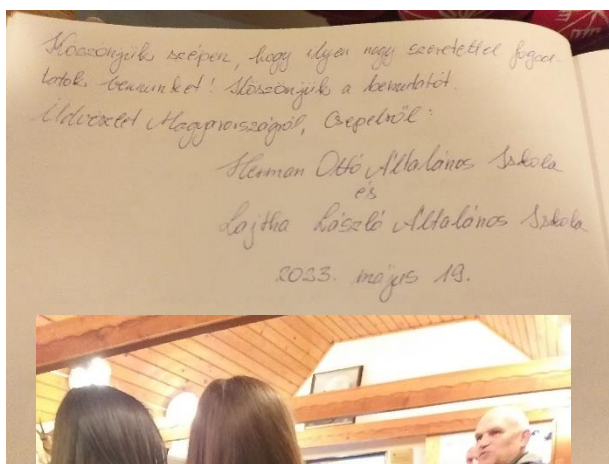 Köszönjük szépen, hogy ilyen nagy szeretettel fogad-
tatok bennunket! Köszönjük a bemutatót.
Üdvözlet Magyarországról, Csepelről:
Herman Ottó Általános Iskola
és
Lajtha László Általános Iskola
2023. május 19.